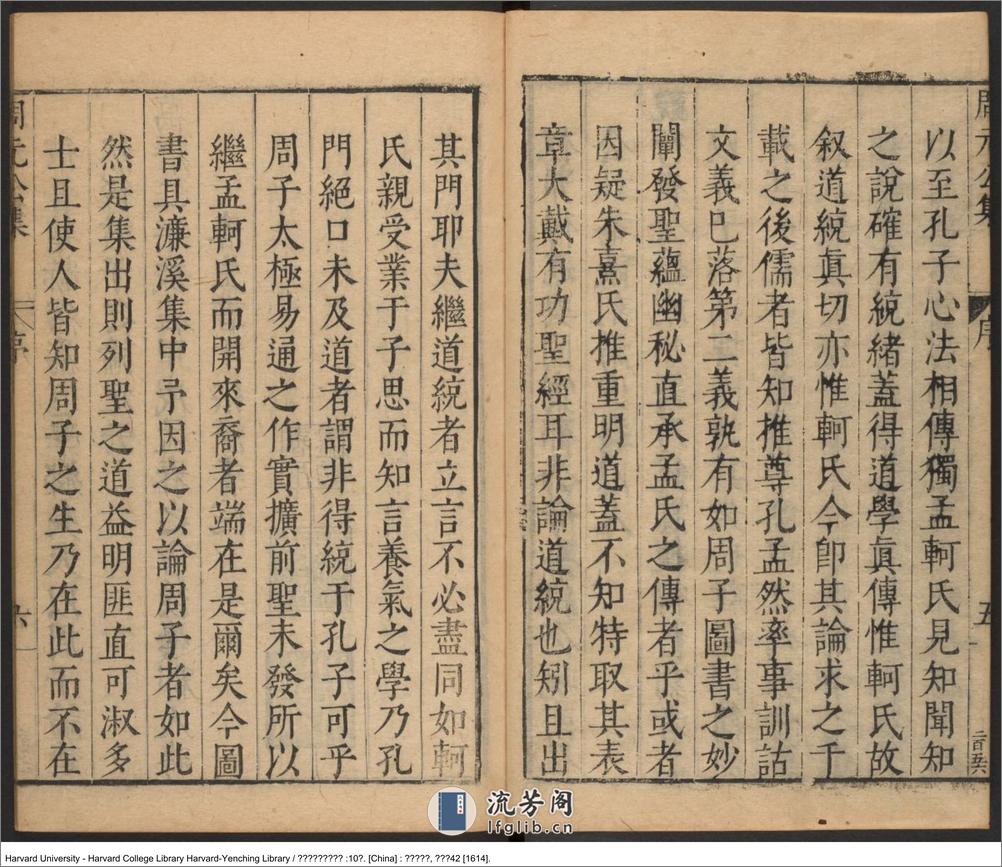 周元公集
序
五
二百五六
以至孔子心法相傳獨孟軻氏見知聞知
之說確有統緒蓋得道學眞傳惟軻氏故
叙道統眞切亦惟軻氏今卽其論求之千
載之後儒者皆知推尊孔孟然率事訓詁
文義已落第二義孰有如周子圖書之妙
闡發聖蘊幽秘直承孟氏之傳者乎或者
因疑朱熹氏推重明道蓋不知特取其表
章大戴有功聖經耳非論道統也矧且出
其門耶夫繼道統者立言不必盡同如軻
氏親受業于子思而知言養氣之學乃孔
門絕口未及道者謂非得統于孔子可乎
周子太極易通之作實擴前聖未發所以
繼孟軻氏而開來裔者端在是爾矣今圖
書具濂溪集中予因之以論周子者如此
然是集出則列聖之道益明匪直可淑多
士且使人皆知周子之生乃在此而不在
周元公集
序
六
流芳阁
lfglib.cn
Harvard University - Harvard College Library Harvard-Yenching Library / ????????? :10?. [China] : ?????, ???42 [1614].